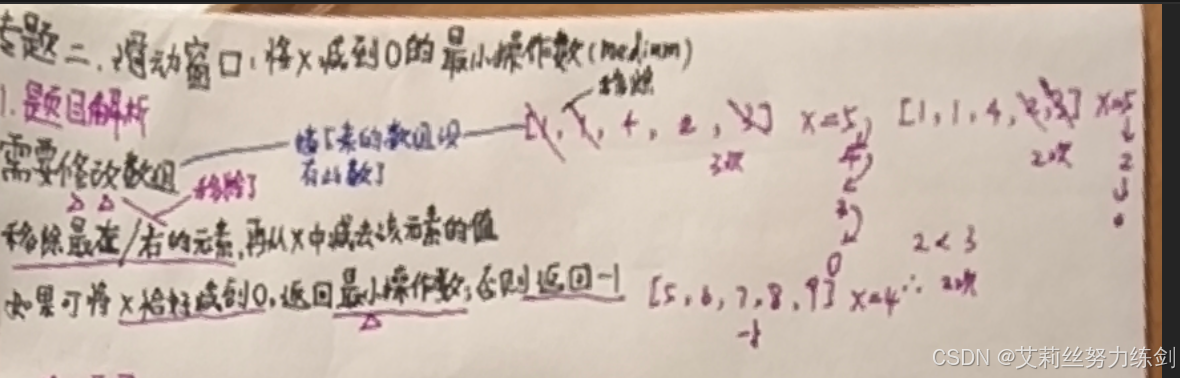 专题二、滑动窗口:将x减到0的最小操作数(medium)
移除
1.题目解析
[1, 1, 4, 2, 3] x=5, [1, 1, 4, 2, 3] x=5
需要修改数组 接下来的数组没有此数了 3次 4, 2次 2
移除了 0
移除最左/右的元素,再从x中减去该元素的值
0 2 < 3
如果可将x恰好减到0,返回最小操作数;否则返回-1 [5, 6, 7, 8, 9] x=4 ∴ 2次
-1
CSDN @艾莉丝努力练剑